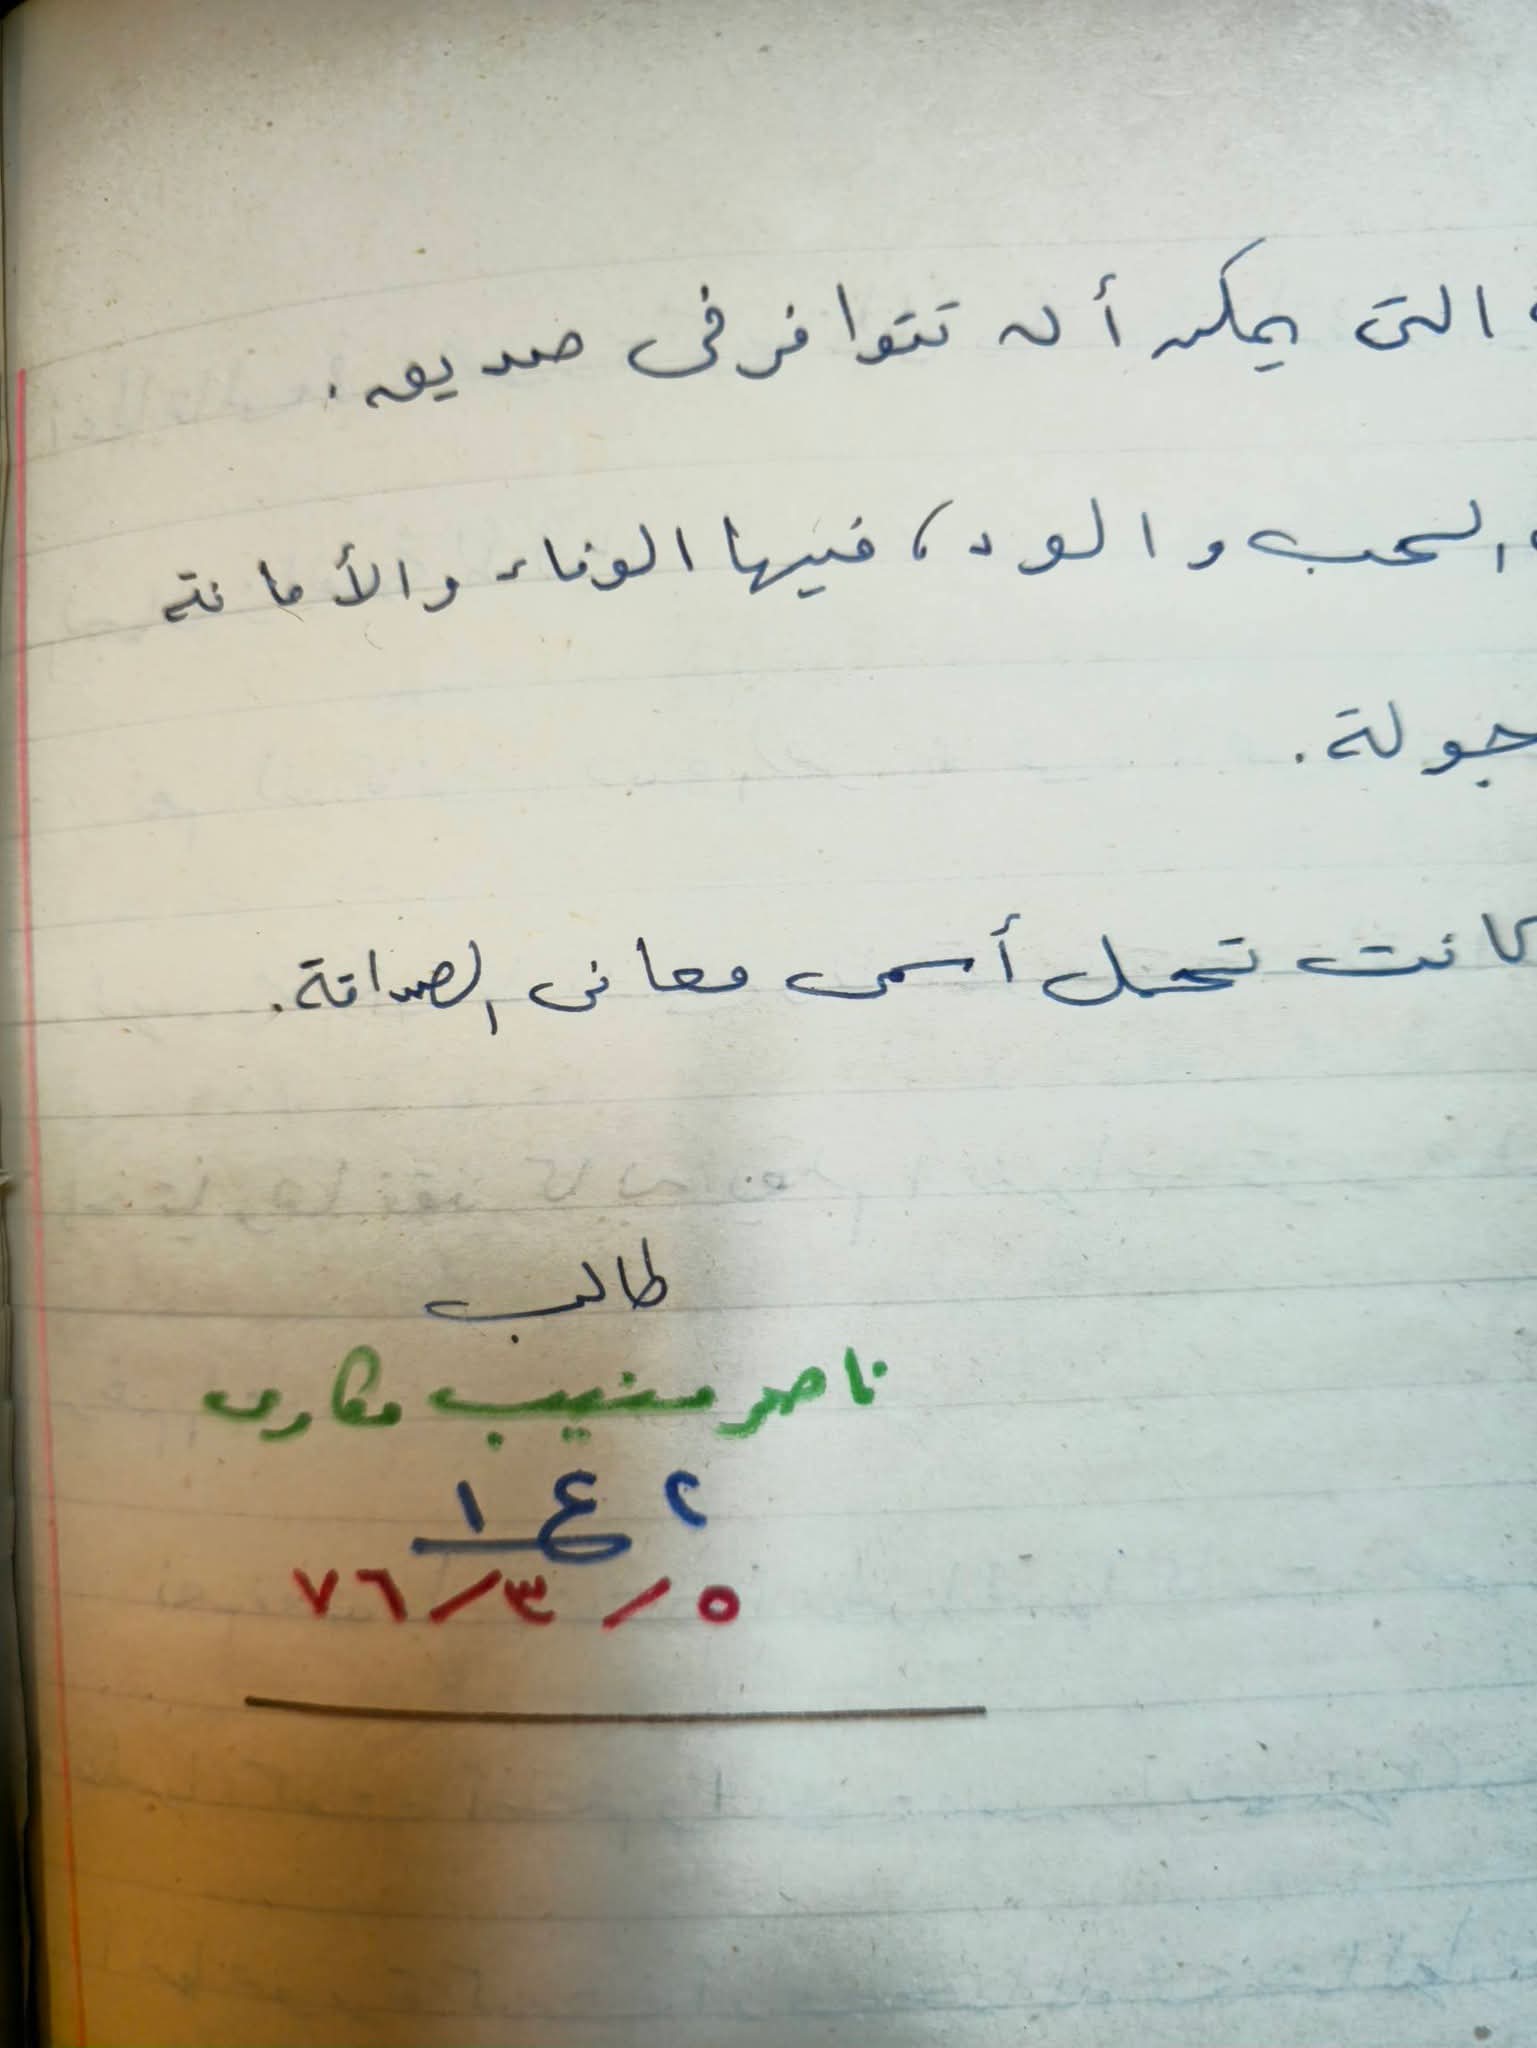 التى يمكن أن تتوافر فى صديق.
الحب والود، فيها الوفاء والأمانة
جولة.
كانت تحمل أسمى معانى الصداقة.
طالب
ناصر منيب مكارى
٢ ع ١
٥/٣/٧٦